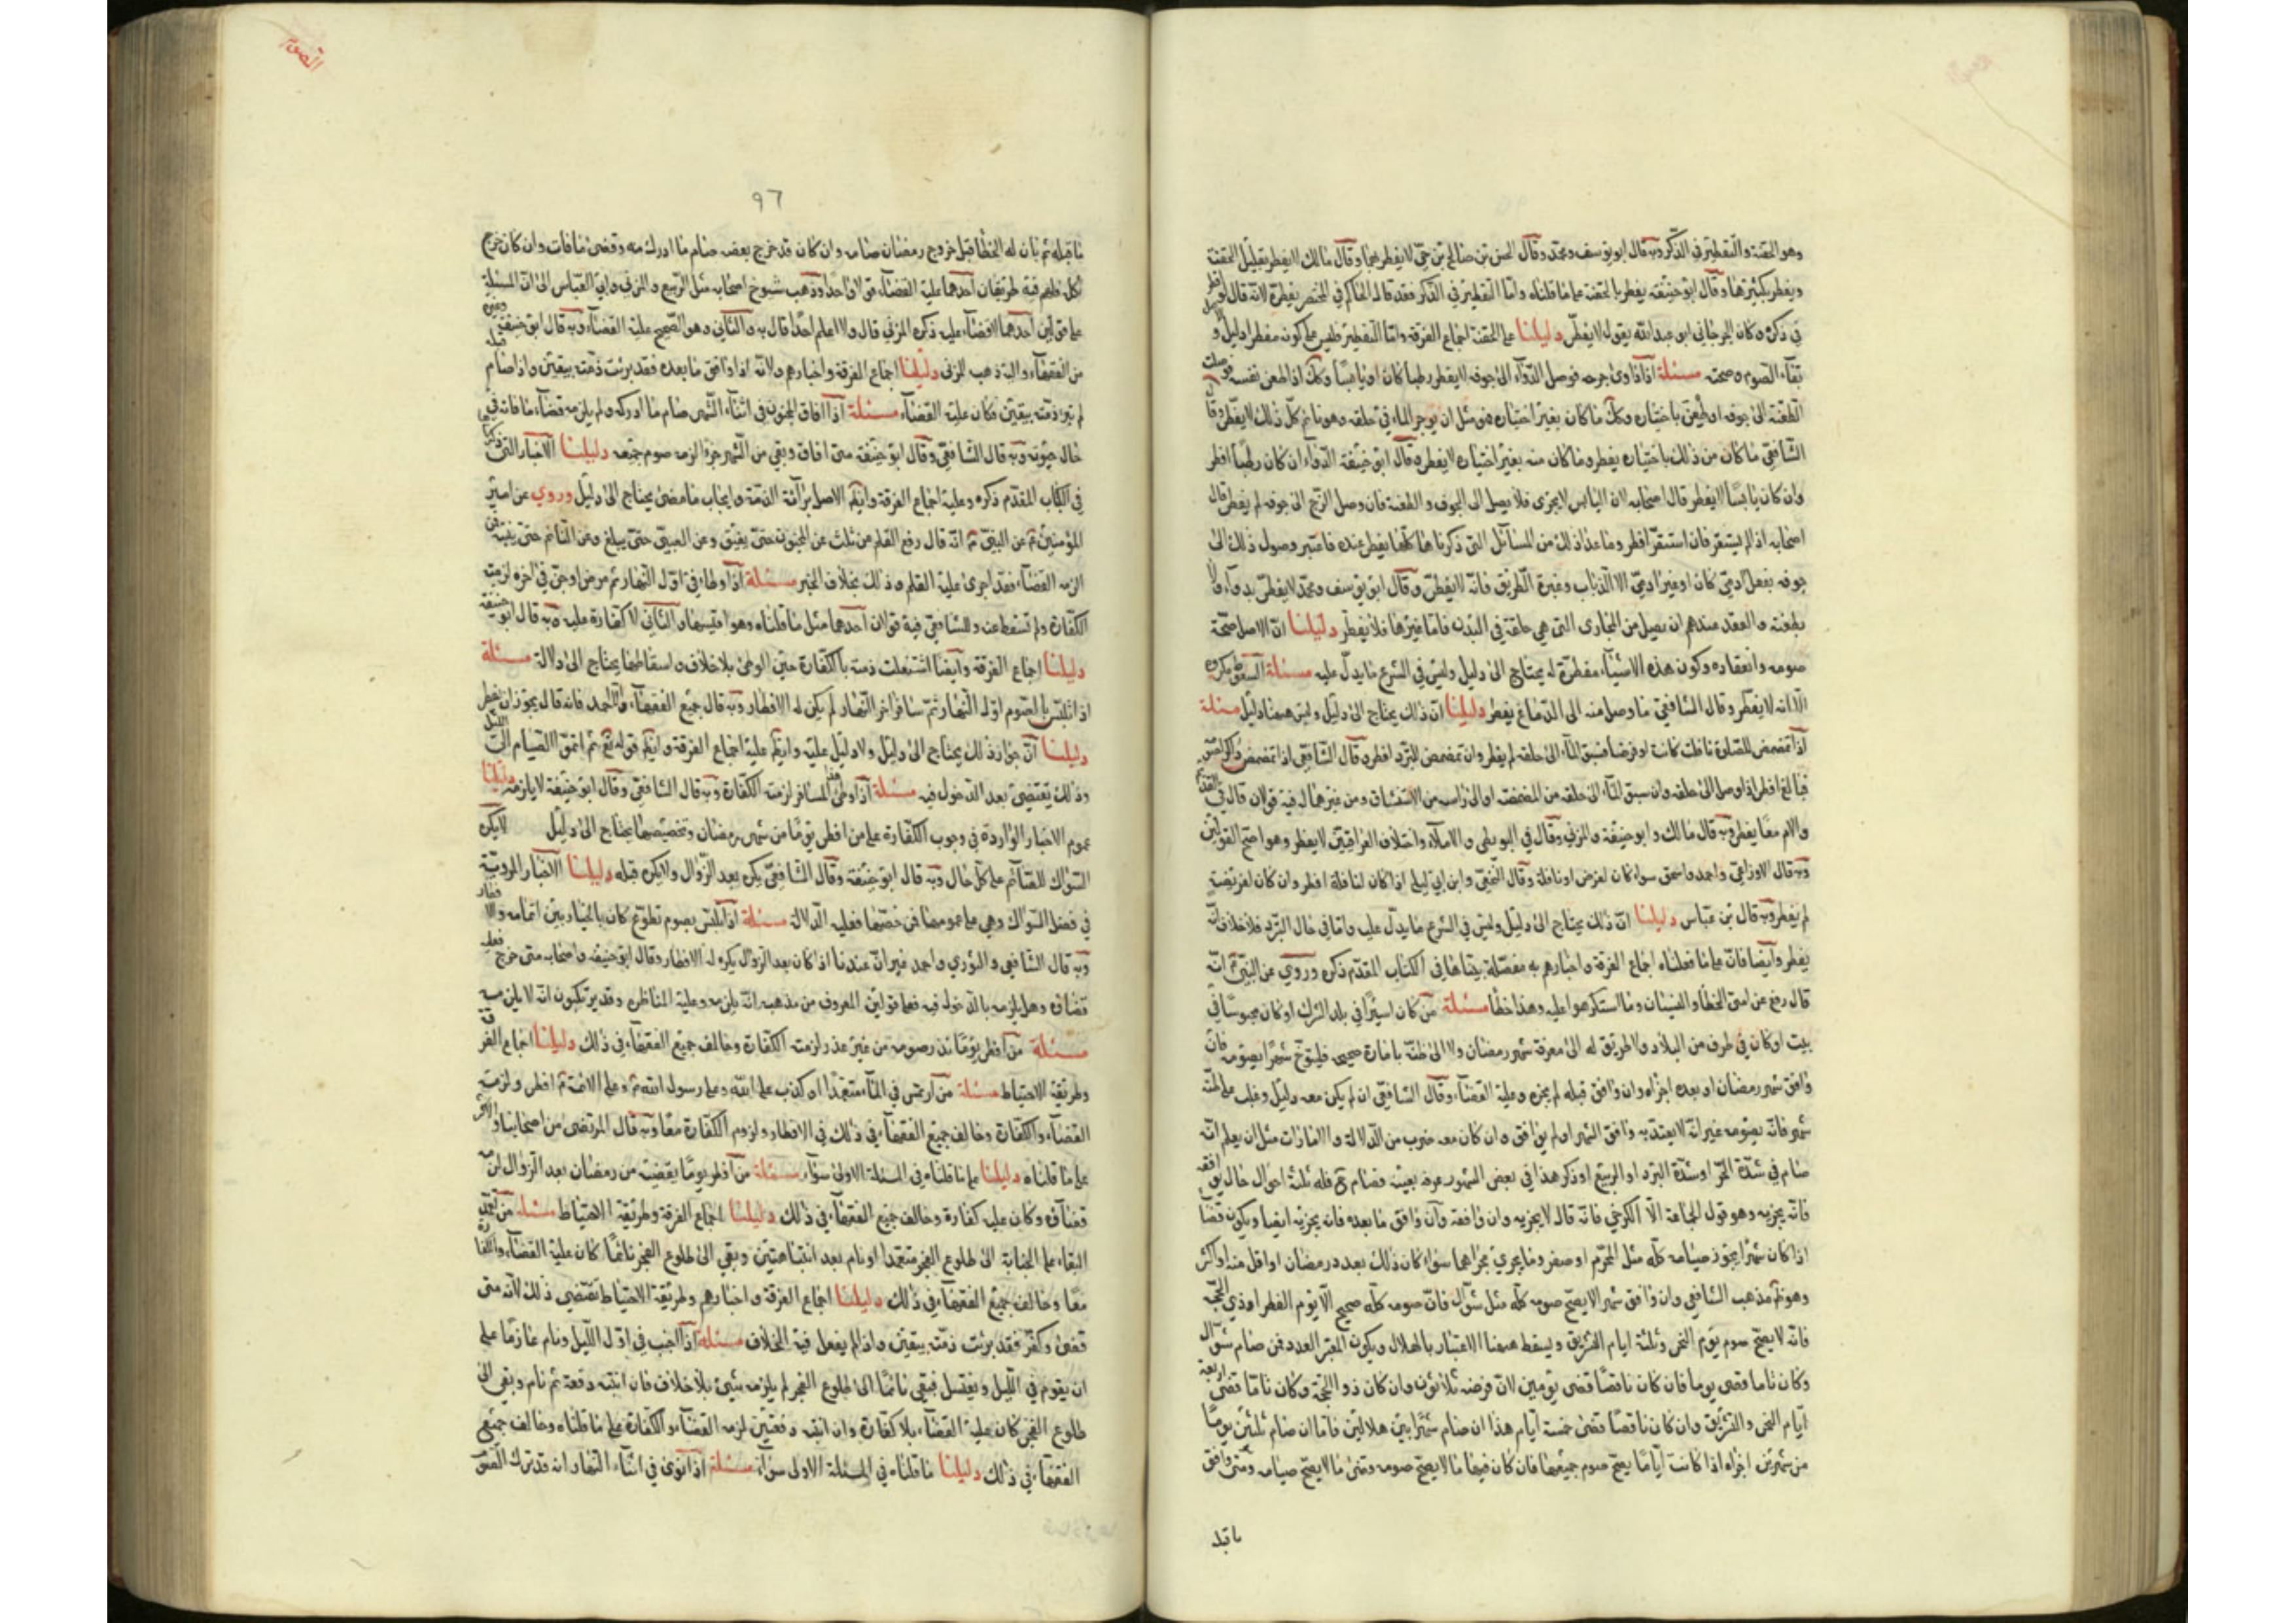 وهو الحقنة والتقطير في الذكر وبه قال ابو يوسف ومحمد وقال الحسن بن صالح بن حي لا يفطر بهما وقال مالك لا يفطر بقليل الحقنة
ويفطر بكثيرها وقال ابو حنيفة يفطر بالحقنة على ما قلناه واما التقطير في الذكر فقد قال الحاكم في المختصر يفطره لانه قال لو اقطر
في ذكره وكان الجرجاني ابو عبد الله يقول لا يفطر دليلنا على الحقنة اجماع الفرقة واما التقطير فليس على كونه مفطرا دليل و
بقاء الصوم وصحته مسئلة اذا داوى جرحه فوصل الدواء الى جوفه لا يفطر رطبا كان او يابسا وكك اذا طعن نفسه فوصلت
الطعنة الى جوفه او طعن باختياره وكك ما كان بغير اختياره من مثل ان يوجر الماء في حلقه وهو نائم كل ذلك لا يفطر وقال
الشافعي ما كان من ذلك باختياره يفطر وما كان منه بغير اختياره لا يفطره وقال ابو حنيفة الدواء ان كان رطبا افطر
وان كان يابسا لا يفطر قال اصحابه لان اليابس لا يجرى فلا يصل الى الجوف والطعنة فان وصل الزج الى جوفه لم يفطر قال
اصحابه اذا لم يستقر فان استقر افطر وما عدا ذلك من المسائل التى ذكرناها كلها يفطر عنده فاعتبر وصول ذلك الى
جوفه بفعل ادمي كان او غير ادمي الا الذباب وغبرة الطريق فانه لا يفطر وقال ابو يوسف ومحمد لا يفطر بدواء ولا
بطعنه والعقد عندهم ان يصل من المجارى التى هي خلقة في البدن فاما غيرها فلا يفطر دليلنا ان الاصل صحة
صومه وانعقاده وكون هذه الاشياء مفطرة له يحتاج الى دليل وليس في الشرع ما يدل عليه مسئلة السعوط مكروه
الا انه لا يفطر وقال الشافعي ما وصل منه الى الدماغ يفطر دليلنا ان ذلك يحتاج الى دليل وليس ههنا دليل مسئلة
اذا تمضمض للصلوة نافلة كانت او فرضا فسبق الماء الى حلقه لم يفطر وان تمضمض للتبرد افطر وقال الشافعي اذا تمضمض ذاكرا لصومه
فبالغ افطر اذا وصل الى حلقه وان سبق الماء الى حلقه من المضمضة او الى راسه من الاستنشاق ومن غيرهما له فيه قولان قال في القديم
والام معا يفطر وبه قال مالك وابو حنيفة والمزني وقال في البويطى والاملاء واختلاف العراقيين لا يفطر وهو اصح القولين
وبه قال الاوزاعي واحمد واسحق سواء كان لفرض او نافلة وقال النخعي وابن ابي ليلى اذا كان لنافلة افطر وان كان لفريضة
لم يفطر وبه قال بن عباس دليلنا ان ذلك يحتاج الى دليل وليس في الشرع ما يدل عليه واما في حال التبرد فلا خلاف انه
يفطر وايضا فان على ما فعلناه اجماع الفرقة واخبارهم به مفصلة بيناها في الكتاب المقدم ذكره وروي عن النبي انه
قال رفع عن امتى الخطأ والنسيان وما استكرهوا عليه وهذا خطأ مسئلة من كان اسيرا في بلد الشرك او كان محبوسا في
بيت او كان في طرف من البلاد ولا طريق له الى معرفة شهر رمضان ولا الى ظنه بامارة صحيحة فليتوخ شهرا يصومه فان
وافق شهر رمضان او بعده اجزاه وان وافق قبله لم يجزه وعليه القضاء وقال الشافعي ان لم يكن معه دليل وغلب على ظنه
شهر فانه يصومه غير انه لا يعتد به وافق الشهر او لم يوافق وان كان معه ضرب من الدلالة والامارات مثل ان يعلم انه
صام في شدة الحر او شدة البرد او الربيع او ذكر هذا في بعض الشهور عرفه بعينه فصام فله ثلثة احوال حال يوافقه
فانه يجزيه وهو قول الجماعة الا الكرخي فانه قال لا يجزيه وان وافقه وان وافق ما بعده فانه يجزيه ايضا ويكون قضاء
اذا كان شهرا يجوز صيامه كله مثل المحرم او صفر وما يجرى مجراهما سواء كان ذلك بعدد رمضان او اقل منه او اكثر
وهو مذهب الشافعي وان وافق شهرا لا يصح صومه كله مثل شوال فان صومه كله صحيح الا يوم الفطر او ذي الحجة
فانه لا يصح صوم يوم النحر وثلثة ايام التشريق ويسقط ههنا الاعتبار بالهلال ويكون المعتبر العدد فمن صام شوال
وكان تاما قضى يوما فان كان ناقصا قضى يومين لان فرضه ثلاثون وان كان ذو الحجة وكان تاما قضى اربعة
ايام النحر والتشريق وان كان ناقصا قضى خمسة ايام هذا ان صام شهرا بين هلالين فاما ان صام ثلثين يوما
من شهرين اجزاه اذا كانت اياما يصح صوم جميعها فان كان فيها ما لا يصح صومه وقضى ما لا يصح صيامه ومتى وافق
ما قبله
٩٦
ما قبله ثم بان له الخطأ قبل خروج رمضان صامه وان كان قد خرج بعضه صام ما ادرك منه وقضى ما فات وان كان خرج
كله فلهم فيه طريقان احدهما عليه القضاء قولا واحدا وذهب شيوخ اصحابه مثل الربيع والمزنى وابي العباس الى ان المسئلة
على قولين احدهما لا قضاء عليه ذكره المزني قال ولا اعلم احدا قال به والثاني وهو الصحيح عليه القضاء وبه قال ابو حنيفة وغيره
من الفقهاء واليه ذهب المزنى دليلنا اجماع الفرقة واخبارهم ولانه اذا وافق ما بعده فقد برئت ذمته بيقين واذا صام قبله
لم تبر ذمته بيقين فكان عليه القضاء مسئلة اذا افاق المجنون في اثناء الشهر صام ما ادركه ولم يلزمه قضاء ما فاته في
حال جنونه وبه قال الشافعي وقال ابو حنيفة متى افاق وبقي من الشهر جزء الزمه صوم جميعه دليلنا الاخبار التى ذكرناها
في الكتاب المقدم ذكره وعليه اجماع الفرقة وايضا الاصل برائة الذمة وايجاب ما مضى يحتاج الى دليل وروي عن امير
المؤمنين عن النبي انه قال رفع القلم عن ثلث عن المجنون حتى يفيق وعن الصبي حتى يبلغ وعن النائم حتى ينتبه فمن
الزمه القضاء فقد اجرى عليه القلم وذلك بخلاف الخبر مسئلة اذا وطئ في اول النهار ثم مرض او جن في اخره لزمته
الكفارة ولم تسقط عنه وللشافعي فيه قولان احدهما مثل ما قلناه وهو اقيسهما والثاني لا كفارة عليه وبه قال ابو حنيفة
دليلنا اجماع الفرقة وايضا اشتغلت ذمته بالكفارة حين الوطئ بلا خلاف واسقاطها يحتاج الى دلالة مسئلة
اذا تلبس بالصوم اول النهار ثم سافر اخر النهار لم يكن له الافطار وبه قال جميع الفقهاء الا احمد فانه قال يجوز ان يفطر
دليلنا ان جواز ذلك يحتاج الى دليل ولا دليل عليه وايضا عليه اجماع الفرقة وايضا قوله تع ثم اتموا الصيام الى الليل
وذلك يقتضى بعد الدخول فيه مسئلة اذا وطئ المسافر لزمته الكفارة وبه قال الشافعي وقال ابو حنيفة لا يلزمه دليلنا
عموم الاخبار الواردة في وجوب الكفارة على من افطر يوما من شهر رمضان وتخصيصها يحتاج الى دليل لا يكره
السواك للصائم على كل حال وبه قال ابو حنيفة وقال الشافعي يكره بعد الزوال ولا يكره قبله دليلنا الاخبار المروية
في فضل السواك وهي على عمومها فمن خصها فعليه الدلالة مسئلة اذا تلبس بصوم تطوع كان بالخيار بين اتمامه والا فطار
وبه قال الشافعي والثوري واحمد غير ان عندنا اذا كان بعد الزوال يكره له الافطار وقال ابو حنيفه واصحابه متى خرج فعليه
قضاؤه وهل يلزمه بالدخول فيه فعلى قولين المعروف من مذهبه انه يلزمه وعليه المناظره وقد يرتكبون انه لا يلزمه
مسئلة من افطر يوما نذر صومه من غير عذر لزمته الكفارة وخالف جميع الفقهاء في ذلك دليلنا اجماع الفرقة
وطريقة الاحتياط مسئلة من ارتمس في الماء متعمدا او كذب على الله وعلى رسول الله وعلى الائمة افطر ولزمته
القضاء والكفارة وخالف جميع الفقهاء في ذلك في الافطار ولزوم الكفارة معا وبه قال المرتضى من اصحابنا والاكثر
على ما قلناه دليلنا على ما قلناه في المسئلة الاولى سواء مسئلة من افطر يوما يقضيه من رمضان بعد الزوال لزمه
قضاؤه وكان عليه كفارة وخالف جميع الفقهاء في ذلك دليلنا اجماع الفرقة وطريقة الاحتياط مسئلة من تعمد
البقاء على الجنابة الى طلوع الفجر متعمدا او نام بعد انتباهتين وبقي الى طلوع الفجر نائما كان عليه القضاء والكفارة
معا وخالف جميع الفقهاء في ذلك دليلنا اجماع الفرقة واخبارهم وطريقة الاحتياط تقتضى ذلك لانه متى
قضى وكفر فقد برئت ذمته بيقين واذا لم يفعل فيه الخلاف مسئلة اذا اجنب في اول الليل ونام عازما على
ان يقوم في الليل ويغتسل فبقي نائما الى طلوع الفجر لم يلزمه شيئ بلا خلاف فان انتبه دفعة ثم نام وبقي الى
طلوع الفجر كان عليه القضاء بلا كفارة وان انتبه دفعتين لزمه القضاء والكفارة على ما قلناه وخالف جميع
الفقهاء في ذلك دليلنا ما قلناه في المسئلة الاولى سواء مسئلة اذا نوى في اثناء النهار انه قد ترك الصوم